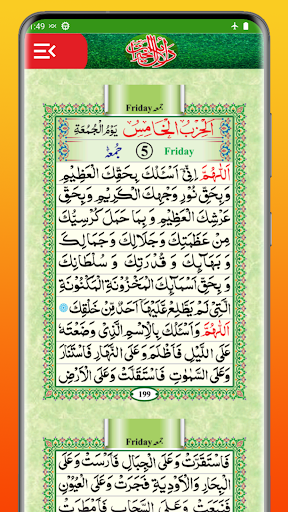 1:49
دلائل الخیرات
Friday جمعہ
اَلْحِزْبُ الْخَامِسُ يَوْمُ الْجُمُعَةِ
جُمُعَہ 5 Friday
اَللّٰهُمَّ اِنِّیْ اَسْئَلُكَ بِحَقِّكَ الْعَظِيْمِ
وَبِحَقِّ نُوْرِ وَجْهِكَ الْكَرِيْمِ وَبِحَقِّ
عَرْشِكَ الْعَظِيْمِ وَبِمَا حَمَلَ كُرْسِيُّكَ
مِنْ عَظَمَتِكَ وَجَلَالِكَ وَجَمَالِكَ
وَبَهَآئِكَ وَقُدْرَتِكَ وَسُلْطَانِكَ
وَبِحَقِّ اَسْمَآئِكَ الْمَخْزُوْنَةِ الْمَكْنُوْنَةِ
الَّتِیْ لَمْ يَطَّلِعْ عَلَيْهَا اَحَدٌ مِّنْ خَلْقِكَ
اَللّٰهُمَّ وَاَسْئَلُكَ بِالْاِسْمِ الَّذِیْ وَضَعْتَهٗ
عَلَی الَّيْلِ فَاَظْلَمَ وَعَلَی النَّهَارِ فَاسْتَنَارَ
وَعَلَی السَّمٰوٰتِ فَاسْتَقَلَّتْ وَعَلَی الْاَرْضِ
199
Friday جمعہ
فَاسْتَقَرَّتْ وَعَلَی الْجِبَالِ فَاَرْسَتْ وَعَلَی
الْبِحَارِ وَالْاَوْدِيَةِ فَجَرَتْ وَعَلَی الْعُيُوْنِ
فَنَبَعَتْ وَعَلَی السَّحَابِ فَاَمْطَرَتْ